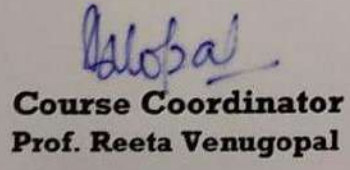 Course Coordinator
Prof. Reeta Venugopal